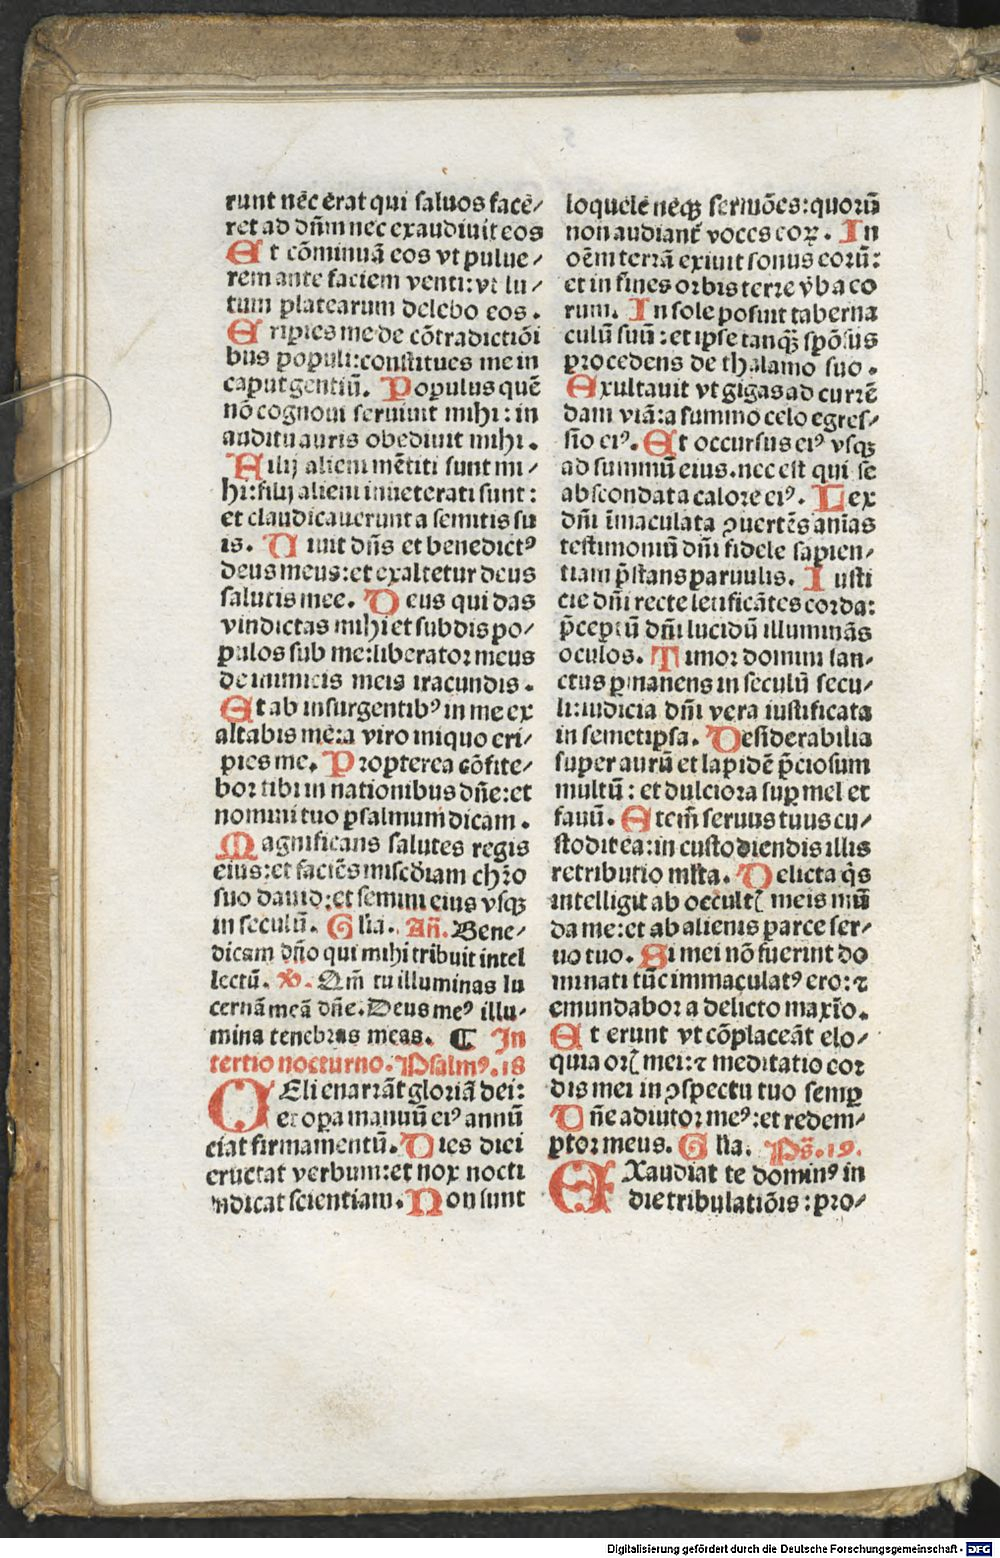 runt nec erat qui saluos face/
ret ad dñm nec exaudiuit eos
Et cōminuā eos vt pulue/
rem ante faciem venti: vt lu/
tum platearum delebo eos.
Eripies me de cōtradictiōi
bus populi: constitues me in
caput gentiū. Populus quē
nō cognoui seruiuit mihi: in
auditu auris obediuit mihi.
Filij alieni mētiti sunt mi/
hi: filij alieni inueterati sunt:
et claudicauerunt a semitis su
is. Uiuit dñs et benedictꝰ
deus meus: et exaltetur deus
salutis mee. Deus qui das
vindictas mihi et subdis po/
pulos sub me: liberator meus
de inimicis meis iracundis.
Et ab insurgentibꝰ in me ex
altabis me: a viro iniquo eri/
pies me. Propterea cōfite/
bor tibi in nationibus dñe: et
nomini tuo psalmum dicam.
Magnificans salutes regis
eius: et faciēs misc̄diam chr̄o
suo dauid: et semini eius vsqꝫ
in seculū. Glīa. Añ. Bene/
dicam dño qui mihi tribuit intel
lectū. ℣. Qm̄ tu illuminas lu
cernā meā dñe. Deus meꝰ illu/
mina tenebras meas. ¶ In
tertio nocturno. Psalmꝰ. 18
CEli enarrāt gloriā dei:
et opa manuū eiꝰ annū
ciat firmamentū. Dies diei
eructat verbum: et nox nocti
indicat scientiam. Non sunt
loquele neqꝫ sermōes: quorū
non audiant̄ voces eoꝝ. In
oēm terrā exiuit sonus eorū:
et in fines orbis terre v̄ba eo
rum. In sole posuit taberna
culū suū: et ipse tanqꝫ spōsus
procedens de thalamo suo.
Exultauit vt gigas ad currē
dam viā: a summo celo egres/
sio eiꝰ. Et occursus eiꝰ vsqꝫ
ad summū eius. nec est qui se
abscondat a calore eiꝰ. Lex
dñi īmaculata ꝯuertēs aīas
testimoniū dñi fidele sapien/
tiam p̄stans paruulis. Iusti
cie dñi recte letificātes corda:
p̄ceptū dñi lucidū illuminās
oculos. Timor domini san/
ctus ꝑmanens in seculū secu/
li: iudicia dñi vera iustificata
in semetipsa. Desiderabilia
super aurū et lapidē p̄ciosum
multū: et dulciora suꝑ mel et
fauū. Etem̄ seruus tuus cu/
stodit ea: in custodiendis illis
retributio mlta. Delicta q̄s
intelligit ab occultꝭ meis mū
da me: et ab alienis parce ser/
uo tuo. Si mei nō fuerint do
minati tūc immaculatꝰ ero: ⁊
emundabor a delicto maxīo.
Et erunt vt cōplaceāt elo/
quia orꝭ mei: ⁊ meditatio cor
dis mei in ꝯspectu tuo semꝑ
Dñe adiutor meꝰ: et redem/
ptor meus. Glīa. Ps̄. 19.
EXaudiat te dominꝰ in
die tribulatiōis: pro/
Digitalisierung gefördert durch die Deutsche Forschungsgemeinschaft - DFG